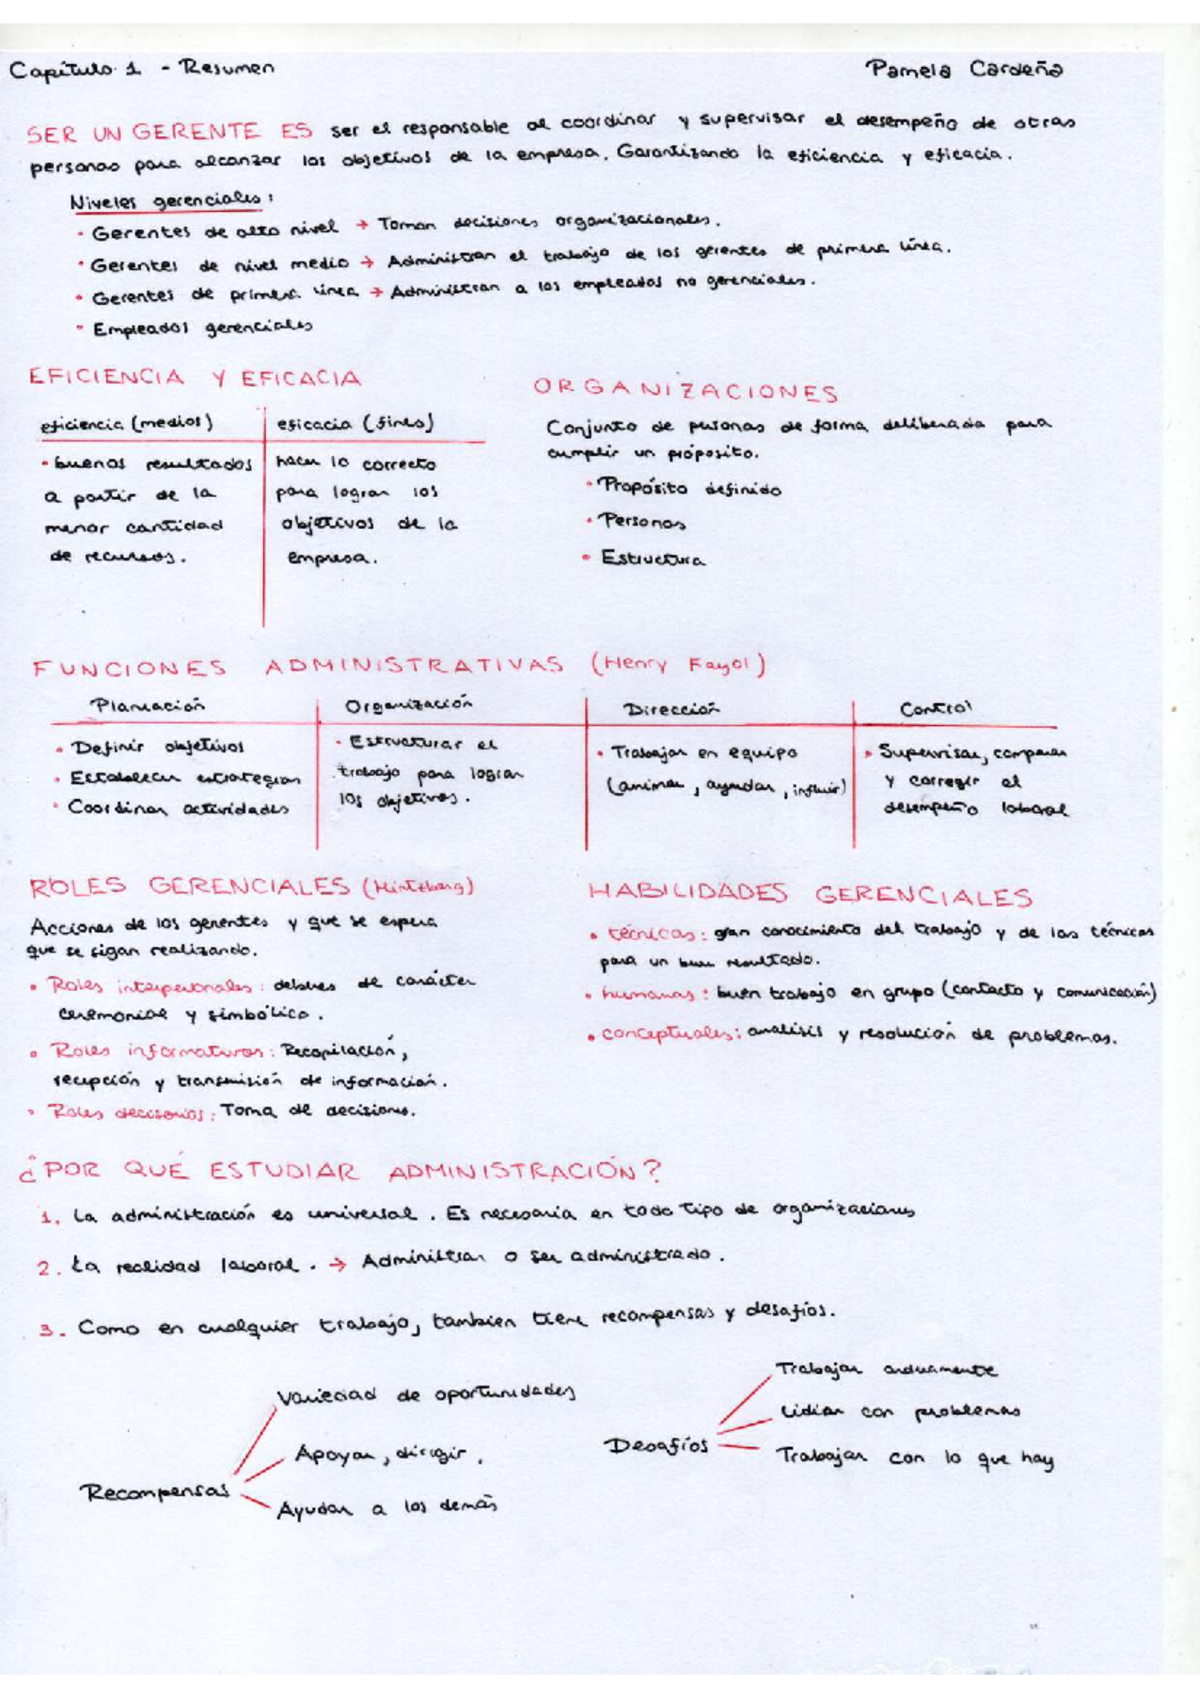 Capítulo 1 - Resumen
Pamela Cardeña
SER UN GERENTE ES ser el responsable de coordinar y supervisar el desempeño de otras
personas para alcanzar los objetivos de la empresa. Garantizando la eficiencia y eficacia.
Niveles gerenciales:
· Gerentes de alto nivel → Toman decisiones organizacionales.
· Gerentes de nivel medio → Administran el trabajo de los gerentes de primera línea.
· Gerentes de primera línea → Administran a los empleados no gerenciales.
· Empleados gerenciales
EFICIENCIA Y EFICACIA
eficiencia (medios)
eficacia (fines)
· buenos resultados
a partir de la
menor cantidad
de recursos.
hacer lo correcto
para lograr los
objetivos de la
empresa.
ORGANIZACIONES
Conjunto de personas de forma deliberada para
cumplir un própósito.
· Propósito definido
· Personas
· Estructura
FUNCIONES ADMINISTRATIVAS (Henry Fayol)
Planeación
Organización
Dirección
Control
· Definir objetivos
· Establecer estrategias
· Coordinar actividades
· Estructurar el
trabajo para lograr
los objetivos.
· Trabajar en equipo
(animar, ayudar, influir)
· Supervisar, comparar
y corregir el
desempeño laboral
ROLES GERENCIALES (Mintzberg)
Acciones de los gerentes y que se espera
que se sigan realizando.
· Roles interpersonales: deberes de carácter
ceremonial y simbólico.
· Roles informativos: Recopilación,
recepción y transmisión de información.
· Roles decisorios: Toma de decisiones.
HABILIDADES GERENCIALES
· técnicas: gran conocimiento del trabajo y de las técnicas
para un buen resultado.
· humanas: buen trabajo en grupo (contacto y comunicación)
· conceptuales: análisis y resolución de problemas.
¿POR QUÉ ESTUDIAR ADMINISTRACIÓN?
1. La administración es universal. Es necesaria en todo tipo de organizaciones
2. La realidad laboral. → Administrar o ser administrado.
3. Como en cualquier trabajo, tambien tiene recompensas y desafíos.
Recompensas
Variedad de oportunidades
Apoyar, dirigir,
Ayudar a los demás
Desafíos
Trabajar arduamente
Lidiar con problemas
Trabajar con lo que hay